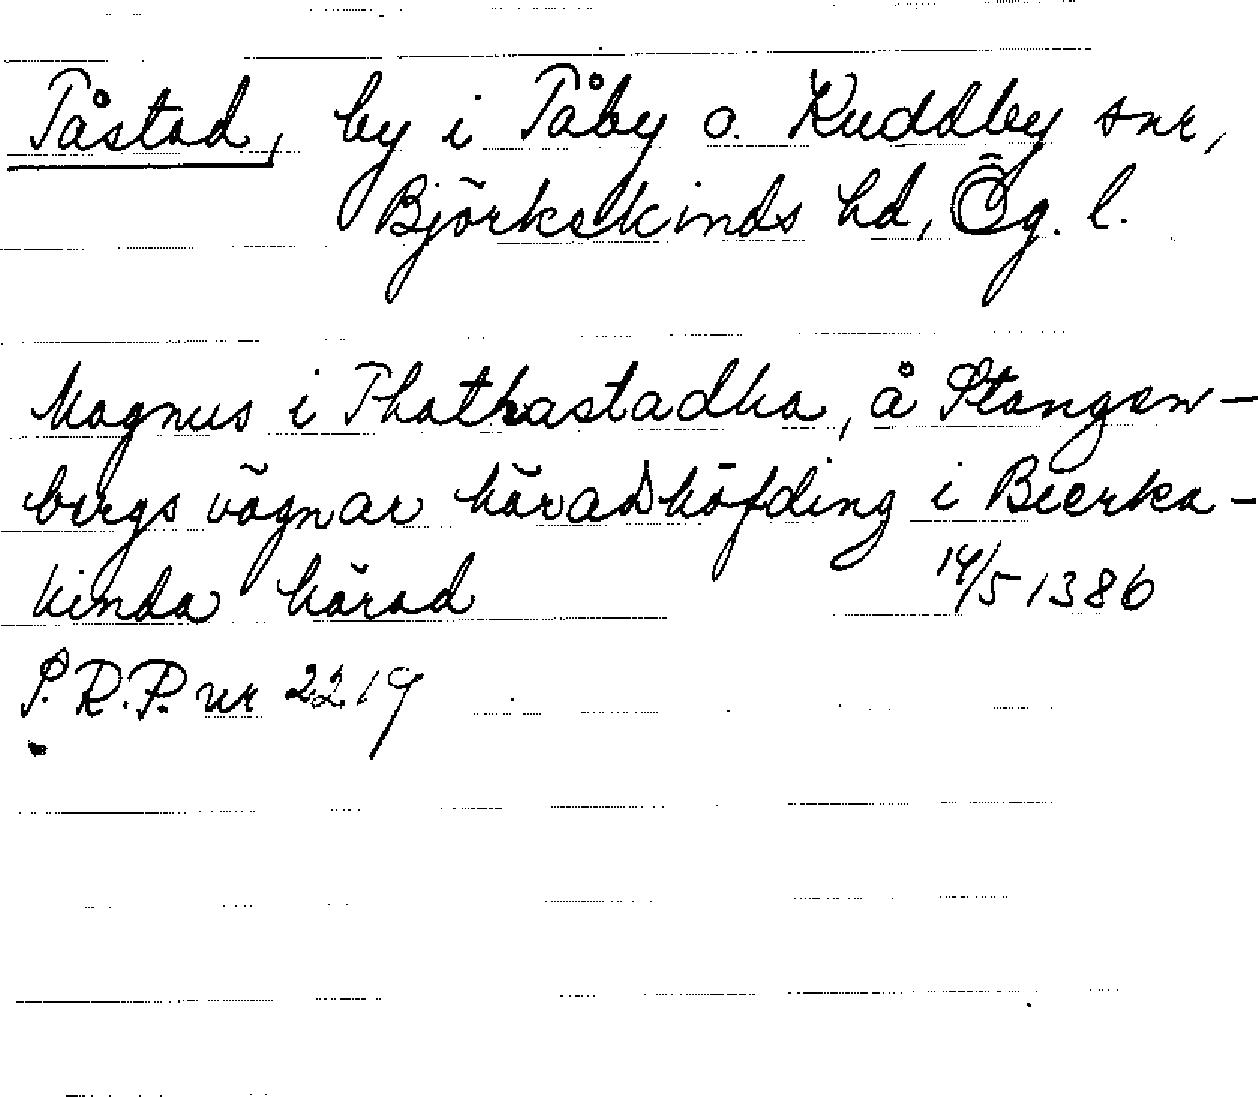 Tåstad, by i Tåby o. Kuddby snr,
Björkekinds hd, Ög. l.
Magnus i Thathastadha, å Stangen-
bergs vägnar häradhöfding i Bierka-
kinda härad 14/5 1386
S.R.P. nr 2219